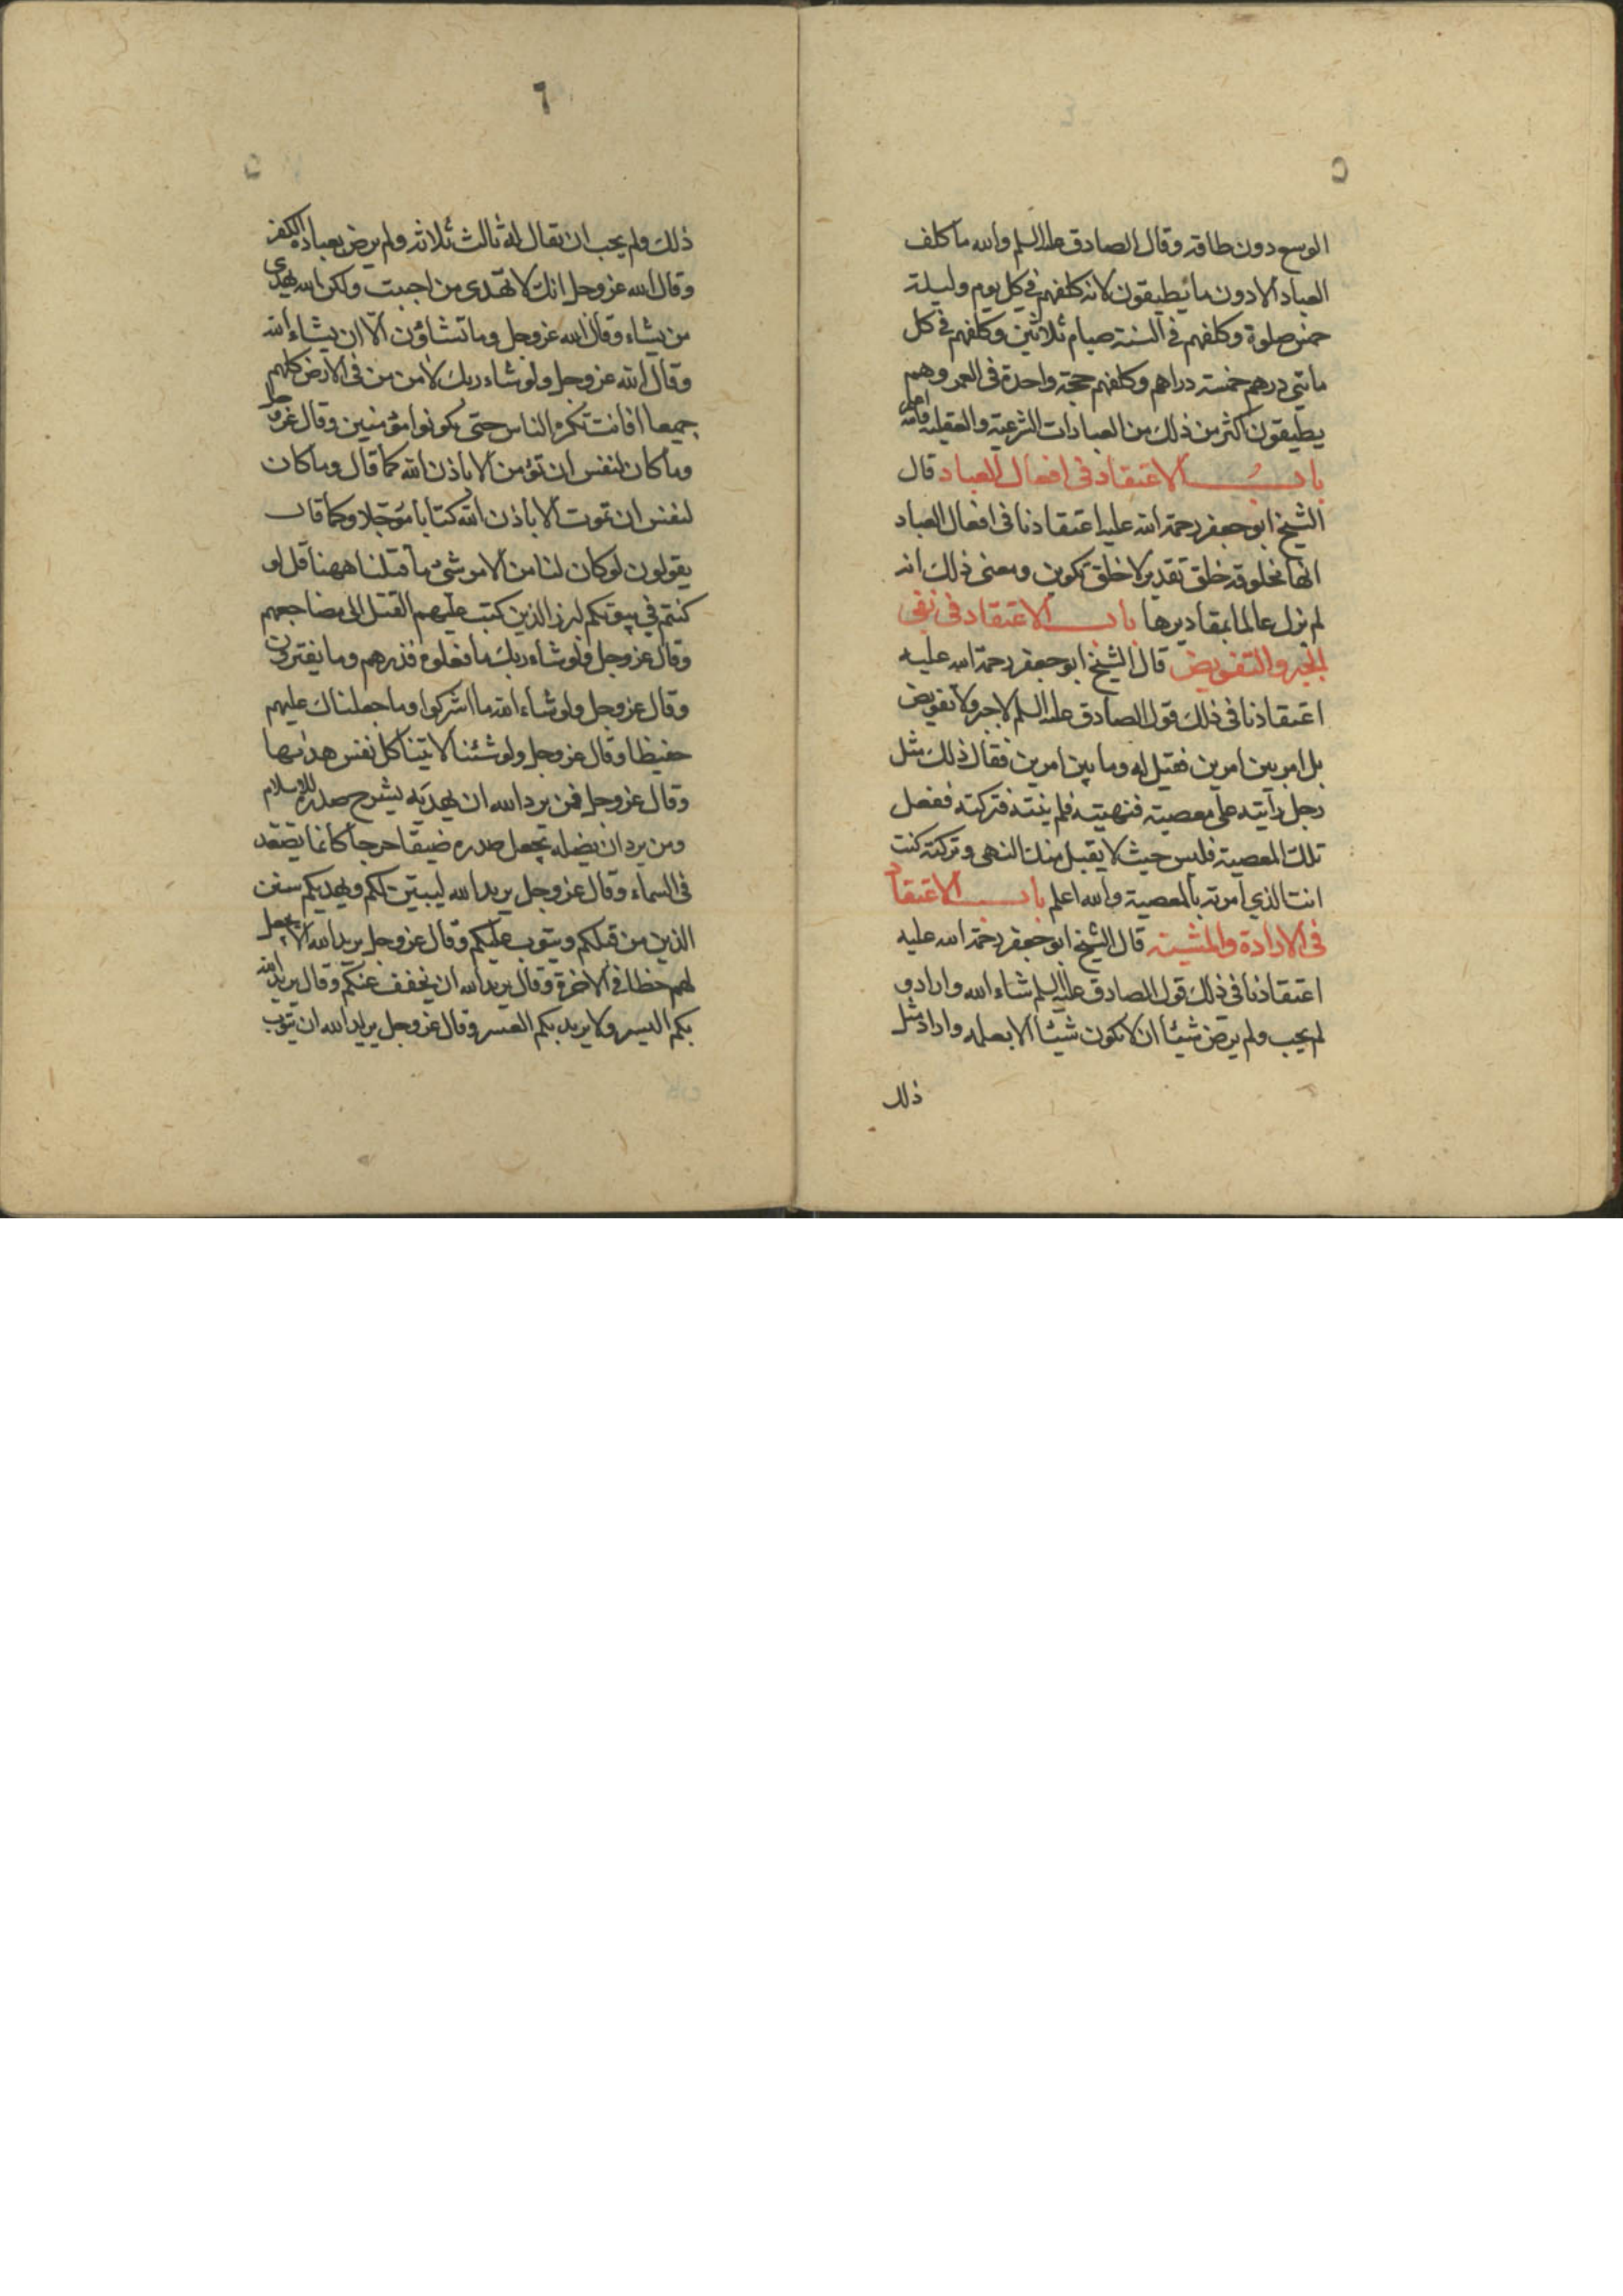 ٥
الوسع دون طاقه وقال الصادق عليه السلم والله ما كلف
العباد الا دون ما يطيقون لانه كلفهم فى كل يوم وليلة
خمس صلوة وكلفهم فى السنة صيام ثلاثين وكلفهم فى كل
مائتي درهم خمسة دراهم وكلفهم حجة واحدة فى العمر وهم
يطيقون اكثر من ذلك من العبادات الشرعية والعقلية
باب الاعتقاد فى افعال العباد قال
الشيخ ابو جعفر رحمة الله عليه اعتقادنا فى افعال العباد
انها مخلوقة خلق تقدير لا خلق تكوين ومعنى ذلك انه
لم يزل عالما بمقاديرها باب الاعتقاد فى نفى
الجبر والتفويض قال الشيخ ابو جعفر رحمة الله عليه
اعتقادنا فى ذلك قول الصادق عليه السلم لا جبر ولا تفويض
بل امر بين امرين فقيل له وما بين امرين فقال ذلك مثل
رجل رايته على معصية فنهيته فلم ينته فتركته ففعل
تلك المعصية فليس حيث لا يقبل منك النهى وتركته كنت
انت الذي امرته بالمعصية والله اعلم باب الاعتقاد
فى الارادة والمشية قال الشيخ ابو جعفر رحمة الله عليه
اعتقادنا فى ذلك قول الصادق عليه السلم شاء الله واراد و
لم يحب ولم يرض شيئا ان لا يكون شيئا الا بعلمه واراد مثل
ذلك
٦
ذلك ولم يحب ان يقال له ثالث ثلاثة ولم يرض بعباده الكفر
وقال الله عز وجل انك لا تهدى من احببت ولكن الله يهدى
من يشاء وقال الله عز وجل وما تشاؤن الا ان يشاء الله
وقال الله عز وجل ولو شاء ربك لامن من فى الارض كلهم
جميعا افانت تكره الناس حتى يكونوا مؤمنين وقال عز وجل
وما كان لنفس ان تؤمن الا باذن الله كما قال وما كان
لنفس ان تموت الا باذن الله كتابا مؤجلا وكما قال
يقولون لو كان لنا من الامر شئ ما قتلنا ههنا قل لو
كنتم في بيوتكم لبرز الذين كتب عليهم القتل الى مضاجعهم
وقال عز وجل ولو شاء ربك ما فعلوه فذرهم وما يفترون
وقال عز وجل ولو شاء الله ما اشركوا وما جعلناك عليهم
حفيظا وقال عز وجل ولو شئنا لاتينا كل نفس هديها
وقال عز وجل فمن يرد الله ان يهديه يشرح صدره للاسلام
ومن يرد ان يضله يجعل صدره ضيقا حرجا كانما يصعد
فى السماء وقال عز وجل يريد الله ليبين لكم ويهديكم سنن
الذين من قبلكم ويتوب عليكم وقال عز وجل يريد الله الا يجعل
لهم حظا فى الاخرة وقال يريد الله ان يخفف عنكم وقال يريد الله
بكم اليسر ولا يريد بكم العسر وقال عز وجل يريد الله ان يتوب